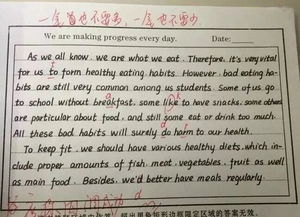 一会首也不要多，一会也不要少.
We are making progress every day. Date:
As we all know, we are what we eat. Therefore, it's very vital
for us to form healthy eating habits. However, bad eating ha-
bits are still very common among us students. Some of us go
to school without breakfast, some like to have snacks, some others
are particular about food, and still some eat or drink too much.
All these bad habits will surely do harm to our health.
To keep fit, we should have various healthy diets, which in-
clude proper amounts of fish, meat, vegetables, fruit as well
as main food. Besides, we'd better have meals regularly.
限定区域的答案无效。